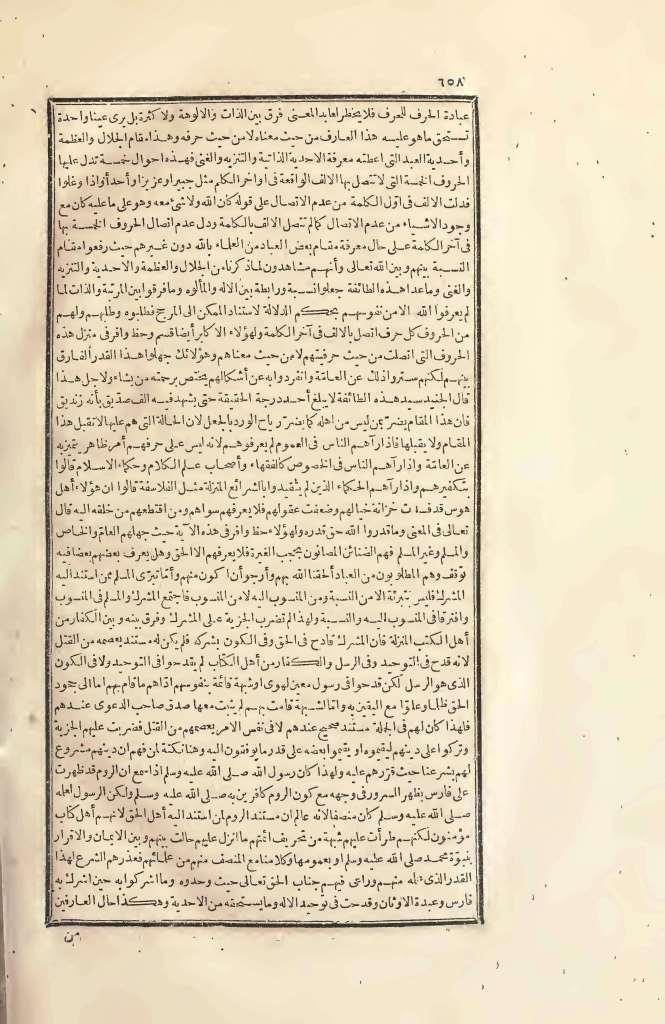 ٦٥٨
عبادة الحرف للحرف فلا يخطر لعابد المعنى فرق بين الذات والالوهة ولا كثرة بل يرى عينا واحدة
تستحق ما هو عليه هذا العارف من حيث معناه لا من حيث حرفه وهذا مقام الجلال والعظمة
وأحدية العبد التى اعطته معرفة الاحدية الذاتية والتنزيه والغنى فهذه احوال خمسة تدل عليها
الحروف الخمسة التى لا تتصل بها الالف الواقعة فى اواخر الكلم مثل جبير او عزيز او أحد أو اذا وغلوا
فدلت الالف فى اوّل الكلمة من عدم الاتصال على قوله كان الله ولا شئ معه وهو على ما عليه كان مع
وجود الاشياء من عدم الاتصال كما لم تتصل الالف بالكلمة ودل عدم اتصال الحروف الخمسة بها
فى آخر الكلمة على حال معرفة مقام بعض العباد من العلماء بالله دون غيرهم حيث رفعوا مقام
النسبة بينهم وبين الله تعالى وأنهم مشاهدون لما ذكرنا من الجلال والعظمة والاحدية والتنزيه
والغنى وما عدا هذه الطائفة جعلوا نسبة ورابطة بين الاله والمألوه وما فرقوا بين المرتبة والذات لما
لم يعرفوا الله الا من نفوسهم بحكم الدلالة لاستناد الممكن الى المرجح فطلبوه وطلبهم ولهم
من الحروف كل حرف اتصل بالالف فى آخر الكلمة ولهؤلاء الاكابر أيضا قسم وحظ وافر فى منزل هذه
الحروف التى اتصلت من حيث حرفيتهم لا من حيث معناهم وهؤلائك جهلوا هذا القدر الفارق
بينهم لكنهم ستروا ذلك عن العامّة وانفردوا به عن أشكالهم يختص برحمته من يشاء ولاجل هذا
قال الجنيد سيد هذه الطائفة لا يبلغ أحد درجة الحقيقة حتى يشهد فيه الف صديق بأنه زنديق
فان هذا المقام يضرّ بمن ليس من اهله كما يضرّ رياح الورد بالجعل لان الحالة التى هم عليها لا تقبل هذا
المقام ولا يقبلها فاذا رآهم الناس فى العموم لم يعرفوهم لانه ليس على حرفهم أمر ظاهر يتميزبه
عن العامّة واذا رآهم الناس فى الخصوص كالفقهاء وأصحاب علم الكلام وحكماء الاسلام قالوا
بتكفيرهم واذا رآهم الحكماء الذين لم يتقيدوا بالشرائع المنزلة مثل الفلاسفة قالوا ان هؤلاء أهل
هوس قد فسدت خزانة خيالهم وضعفت عقولهم فلا يعرفهم سواهم ومن اقتطعهم من خلقه اليه قال
تعالى فى المعنى وما قدروا الله حق قدره ولهؤلاء حظ وافر فى هذه الآية حيث جهلهم العامّ والخاص
والمسلم وغير المسلم فهم الضنائن المصانون بحجب الغيرة فلا يعرفهم الا الحق وهل يعرف بعضهم بعضا فيه
توقف وهم المطلوبون من العباد ألحقنا الله بهم وأرجو أن اكون منهم وأمّا تبرّى المسلم ممن استند اليه
المشرك فليس تبرئة الا من النسبة ومن المنسوب اليه لا من المنسوب فاجتمع المشرك والمسلم فى المنسوب
وافترقا فى المنسوب اليه والنسبة ولهذا لم تضرب الجزية على المشرك وفرق بينه وبين الكفار من
أهل الكتب المنزلة فان المشرك قادح فى الحق وفى الكون بشركه فلم يكن له مستند يعصمه من القتل
لانه قدح فى التوحيد وفى الرسل والكفار من أهل الكتاب لم يقدحوا فى التوحيد ولا فى الكون
الذى هو الرسل لكن قدحوا فى رسول معين لهوى او شبهة قائمة بنفوسهم اذاهم ما قام بهم اما الى جحود
الحق ظلما وعلوّا مع اليقين به وامّا لشبهة قامت بهم لم يثبت معها صدق صاحب الدعوى عندهم
فلهذا كان لهم فى الجملة مستند صحيح عندهم لا فى نفس الامر يعصمهم من القتل فضربت عليهم الجزية
وتركوا على دينهم ليقيموه او يقيموا بعضه على قدر ما يوفقون اليه وهنا نكتة لمن فهم ان دينهم مشروع
لهم بشرعنا حيث قررهم عليه ولهذا كان رسول الله صلى الله عليه وسلم اذا سمع ان الروم قد ظهرت
على فارس يظهر السرور فى وجهه مع كون الروم كافرين به صلى الله عليه وسلم ولكن الرسول لعله
صلى الله عليه وسلم كان منصفا لانه عالم ان مستند الروم لمن استند اليه أهل الحق لانهم أهل كتاب
مؤمنون لكنهم طرأت عليهم شبهة من تحريف ائمتهم ما انزل عليهم حالت بينهم وبين الايمان والاقرار
بنبوّة محمد صلى الله عليه وسلم او بعمومها وكلامنا مع المنصف منهم من علمائهم فعذرهم الشرع لهذا
القدر الذى علمه منهم وراعى فيهم جناب الحق تعالى حيث وحدوه وما اشركوا به حين اشرك به
فارس وعبدة الاوثان وقدحت فى توحيد الاله وما يستحقه من الاحدية وهكذا حال العارفين
من